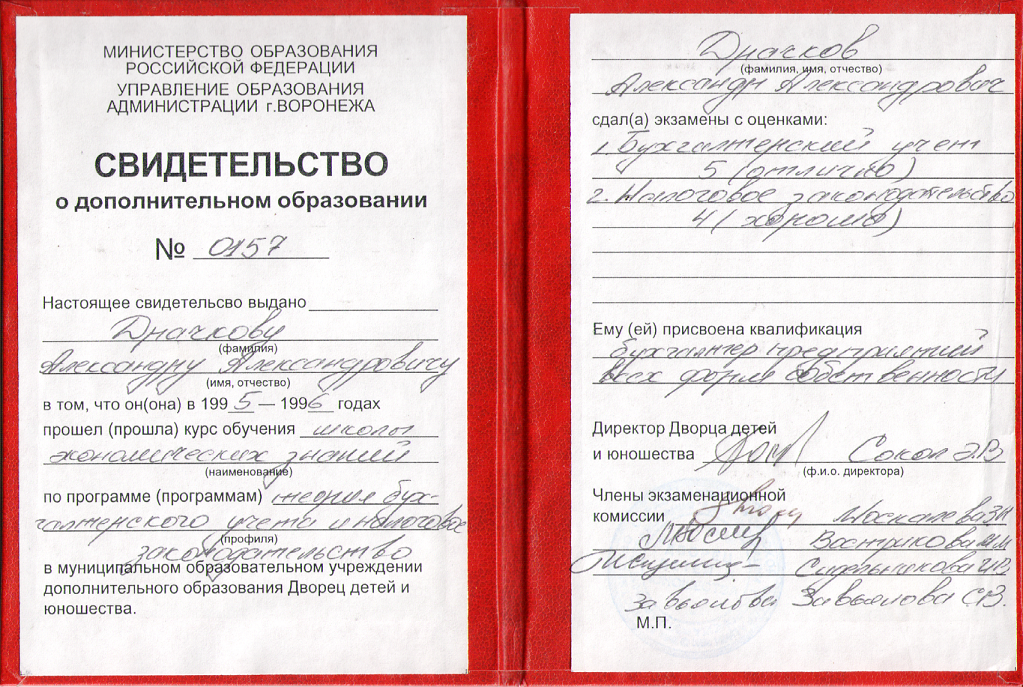 МИНИСТЕРСТВО ОБРАЗОВАНИЯ
РОССИЙСКОЙ ФЕДЕРАЦИИ
УПРАВЛЕНИЕ ОБРАЗОВАНИЯ
АДМИНИСТРАЦИИ г.ВОРОНЕЖА
СВИДЕТЕЛЬСТВО
о дополнительном образовании
№ 0157
Настоящее свидетельсво выдано
Драчкову
(фамилия)
Александру Александровичу
(имя, отчество)
в том, что он(она) в 1995 — 1996 годах
прошел (прошла) курс обучения школы
экономических знаний
(наименование)
по программе (программам) теория бух-
галтенского учета и налоговое
(профиля)
законодательство
в муниципальном образовательном учреждении
дополнительного образования Дворец детей и
юношества.
Драчков
(фамилия, имя, отчество)
Александр Александрович
сдал(а) экзамены с оценками:
1. Бухгалтерский учет
5 (отлично)
2. Налоговое законодательство
4 (хорошо)
Ему (ей) присвоена квалификация
бухгалтер предприятий
всех форм собственности
Директор Дворца детей
и юношества Сокол Э.В
(ф.и.о. директора)
Члены экзаменационной
комиссии Москалева З.Н
Вострикова М.М
Завьялова Завьялова С.В.
М.П.